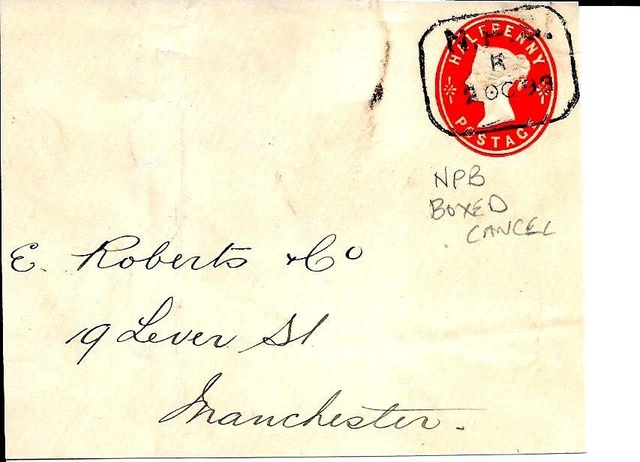 HALFPENNY
POSTAGE
N.P.B.
K
2 OC 93
NPB
BOXED
CANCEL
E. Roberts & Co
19 Lever St
Manchester.